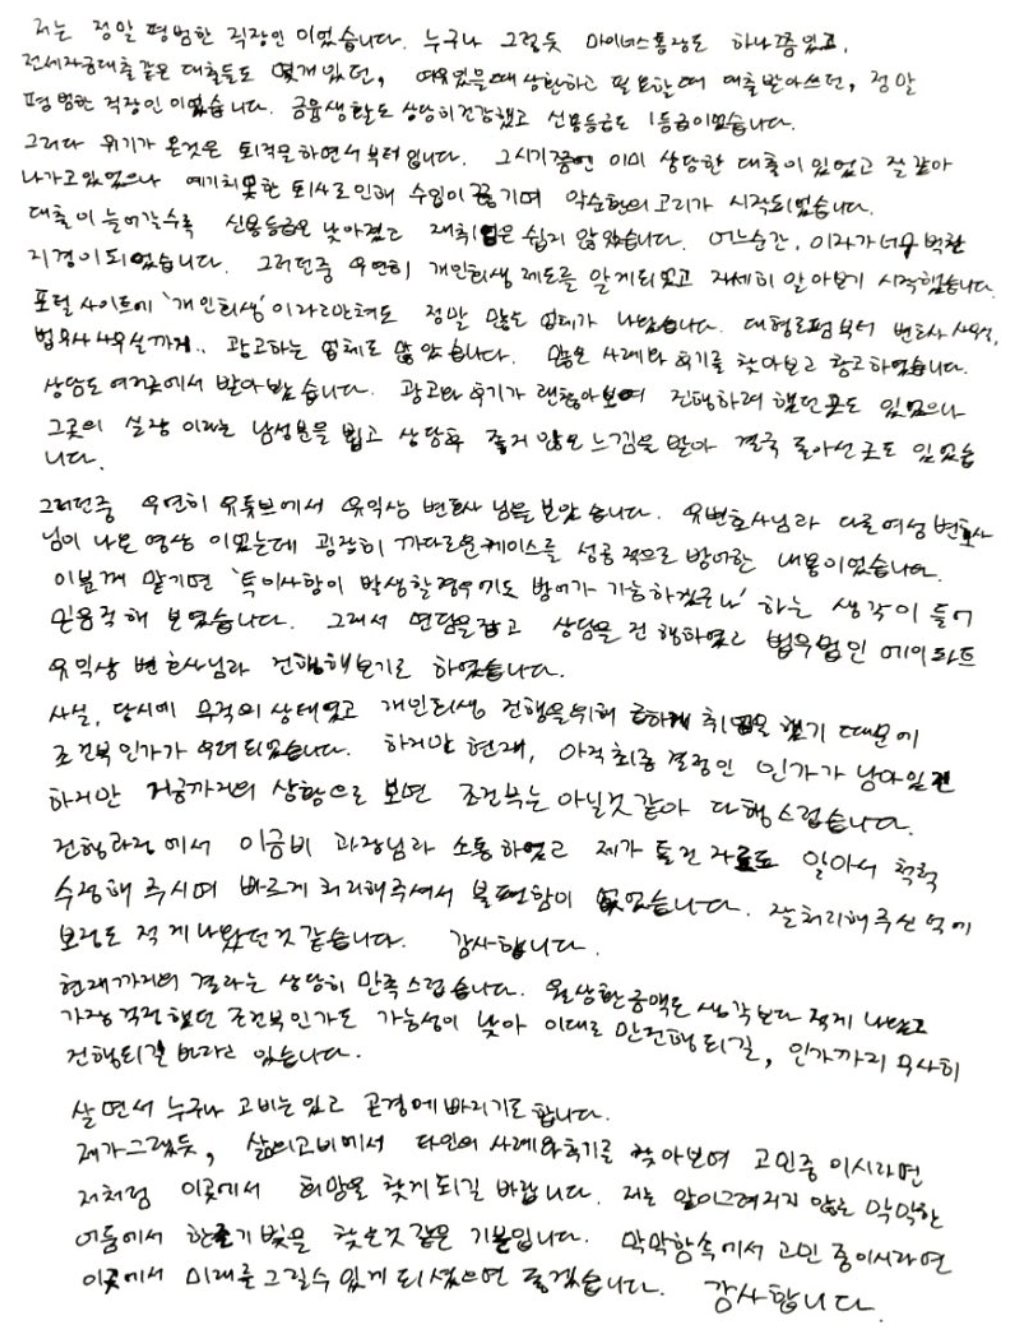 저는 정말 평범한 직장인 이었습니다. 누구나 그렇듯 마이너스통장도 하나쯤있고,
전세자금대출같은 대출들도 몇개있던, 여유있을때상환하고 필요할때 대출받아쓰던, 정말
평범한 직장인이었습니다. 금융생활도 상당히건강했고 신용등급도 1등급이었습니다.
그러다 위기가 온것은 퇴직을하면서부터입니다. 그시기쯤엔 이미 상당한 대출이 있었고 잘 갚아
나가고있었으나 예기치못한 퇴사로인해 수입이 끊기며 악순환의고리가 시작되었습니다.
대출이 늘어갈수록 신용등급은 낮아졌고 재취업은 쉽지 않았습니다. 어느순간, 이자가너무 벅찬
지경이되었습니다. 그러던중 우연히 개인회생 제도를 알게되었고 자세히 알아보기 시작했습니다.
포털 사이트에 '개인회생'이라고만쳐도 정말 많은 업체가 나왔습니다. 대형로펌부터 변호사사무실,
법무사사무실까지.. 광고하는 업체도 많았습니다. 많은 사례와 후기를 찾아보고 참고하였습니다.
상담도 여러곳에서 받아봤습니다. 광고와 후기가 괜찮아보여 진행하려 했던곳도 있었으나
그곳의 실장 이라는 남성분을 뵙고 상담후 좋지 않은느낌을 받아 결국 돌아선곳도 있었습
니다.
그러던중 우연히 유튜브에서 유익상 변호사님을 보았습니다. 유변호사님과 다른여성변호사
님이 나온 영상 이었는데 굉장히 까다로운케이스를 성공적으로 방어한 내용이었습니다.
이분께 맡기면 '특이사항이 발생할경우에도 방어가 가능하겠구나' 하는 생각이 들어
믿음직해 보였습니다. 그래서 면담을잡고 상담을 진행하였고 법무법인 에이파트
유익상 변호사님과 진행해보기로 하였습니다.
사실, 당시에 무직의 상태였고 개인회생 진행을위해 급하게 취업을 했기 때문에
조건부인가가 우려되었습니다. 하지만 현재, 아직최종결정인 인가가 남아있긴
하지만 지금까지의 상황으로 보면 조건부는 아닐것같아 다행스럽습니다.
진행과정에서 이금비 과장님과 소통하였고 제가 통신자료도 알아서 척척
수정해 주시며 빠르게 처리해주셔서 불편함이 없었습니다. 잘처리해주신덕에
보정도 적게나왔던것같습니다. 감사합니다.
현재까지의 결과는 상당히 만족스럽습니다. 월상환금액도 생각보다 적게 나왔고
가장걱정했던 조건부인가도 가능성이 낮아 이대로 만진행되길, 인가까지 무사히
진행되길 바라고 있습니다.
살면서 누구나 고비는있고 곤경에빠지기도합니다.
제가그랬듯, 삶의고비에서 타인의 사례와후기를 찾아보며 고민중 이시라면
저처럼 이곳에서 희망을 찾게되길 바랍니다. 저는 앞이그려지지 않는 막막한
어둠에서 한줄기빛을 찾은것 같은 기분입니다. 막막함속에서 고민 중이시라면
이곳에서 미래를 그릴수 있게 되셨으면 좋겠습니다. 감사합니다.